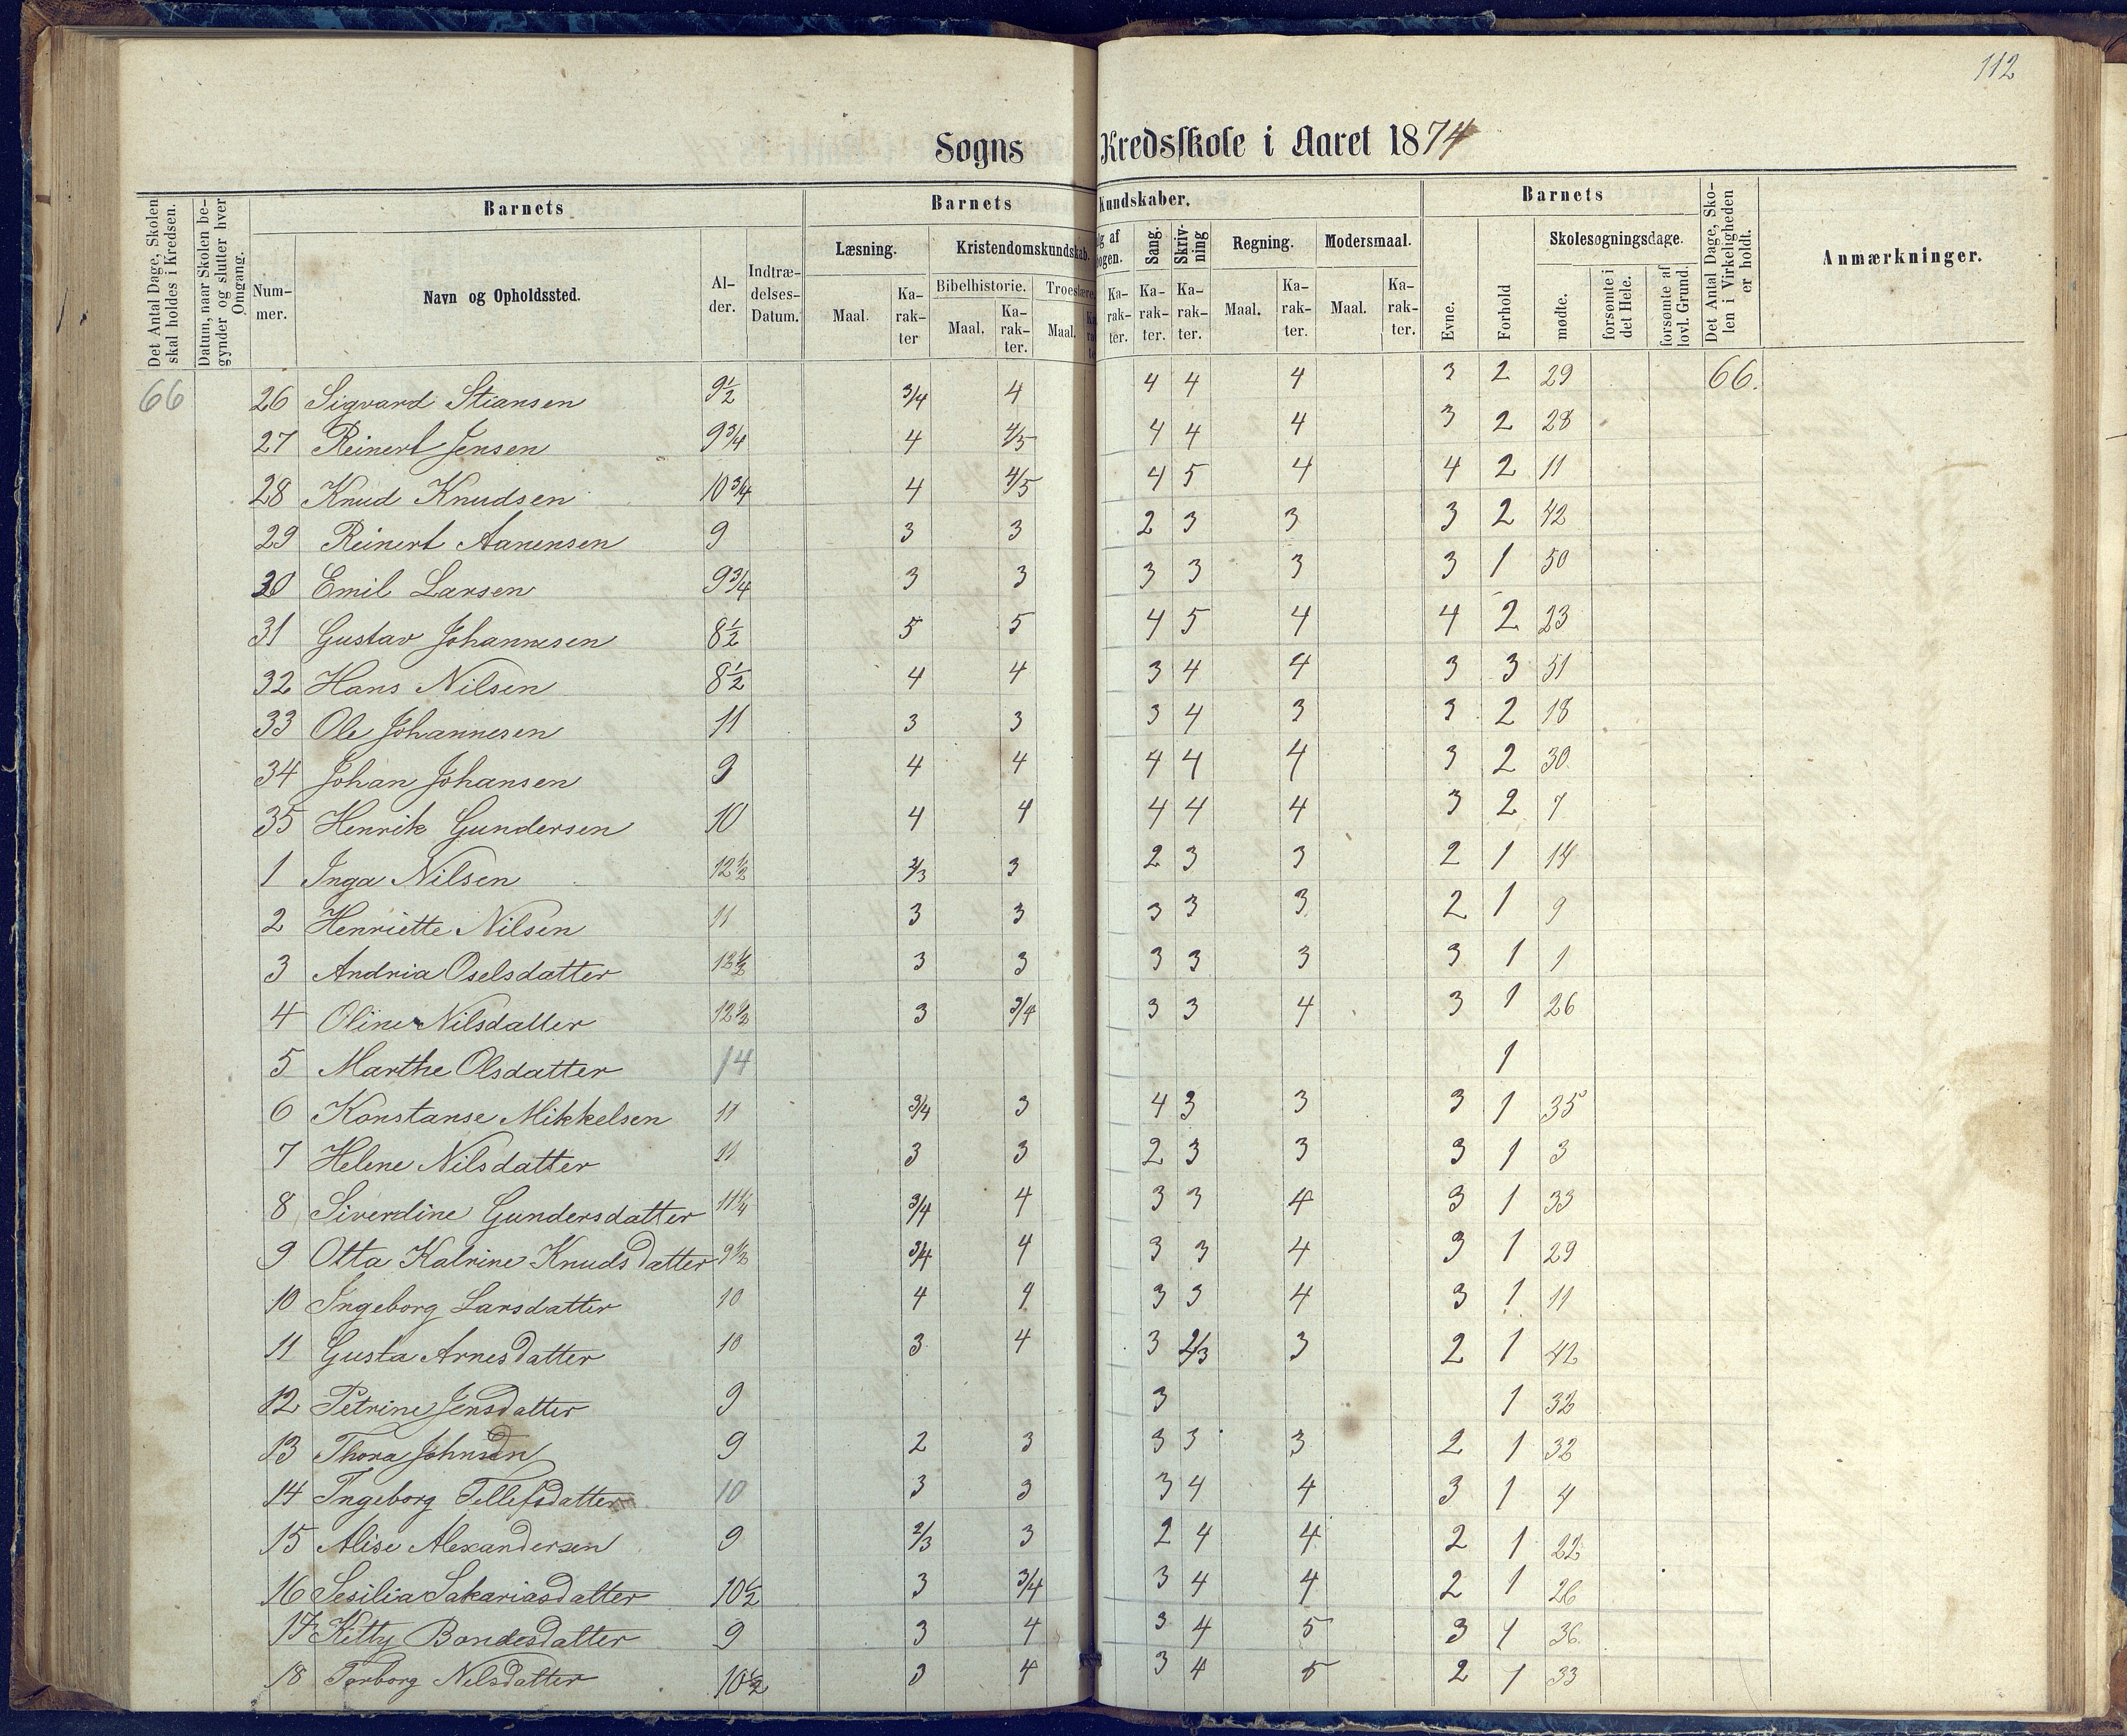 112
Sogns Kredsskole i Aaret 1874
Det Antal Dage, Skolen skal holdes i Kredsen.
Datum, naar Skolen begynder og slutter hver Omgang.
Barnets
Nummer.
Navn og Opholdssted.
Alder.
Indtrædelses-Datum.
Barnets Kundskaber.
Læsning.
Maal.
Karakter
Kristendomskundskab.
Bibelhistorie.
Maal.
Karakter.
Troeslære
Maal.
Sang.
Karakter.
Skrivning
Karakter.
Regning.
Maal.
Karakter.
Modersmaal.
Maal.
Karakter.
Barnets
Evne.
Forhold
Skolesøgningsdage.
mødte.
forsømte i det Hele.
forsømte af lovl. Grund.
Det Antal Dage, Skolen i Virkeligheden er holdt.
Anmærkninger.
66 26 Sigvard Stiansen 9½ 3/4 4 4 4 4 3 2 29 66.
27 Reinert Jensen 9¾ 4 4/5 4 4 4 3 2 28
28 Knud Knudsen 10¾ 4 4/5 4 5 4 4 2 11
29 Reinert Aanensen 9 3 3 2 3 3 3 2 42
30 Emil Larsen 9¾ 3 3 3 3 3 3 1 50
31 Gustav Johannesen 8½ 5 5 4 5 4 4 2 23
32 Hans Nilsen 8½ 4 4 3 4 4 3 3 51
33 Ole Johannesen 11 3 3 3 4 3 3 2 18
34 Johan Johansen 9 4 4 4 4 4 3 2 30
35 Henrik Gundersen 10 4 4 4 4 4 3 2 7
1 Inga Nilsen 12½ 2/3 3 2 3 3 2 1 14
2 Henriette Nilsen 11 3 3 3 3 3 2 1 9
3 Andria Oselsdatter 13½ 3 3 3 3 3 3 1 1
4 Oline Nilsdatter 12½ 3 3/4 3 3 4 3 1 26
5 Marthe Olsdatter 14 1
6 Konstanse Mikkelsen 11 3/4 3 4 3 3 3 1 35
7 Helene Nilsdatter 11 3 3 2 3 3 3 1 3
8 Siverdine Gundersdatter 11¼ 3/4 4 3 3 4 3 1 33
9 Otta Katrine Knudsdatter 9½ 3/4 4 3 3 4 3 1 29
10 Ingeborg Larsdatter 10 4 4 3 3 4 3 1 11
11 Gusta Arnesdatter 10 3 4 3 2/3 3 2 1 42
12 Petrine Jensdatter 9 3 1 32
13 Thora Johnsen 9 2 3 3 3 3 2 1 32
14 Ingeborg Tellefsdatter 10 3 3 3 4 4 3 1 4
15 Alise Alexandersen 9 2/3 3 2 4 4 2 1 22
16 Sesilia Sakariasdatter 10½ 3 3/4 3 4 4 2 1 26
17 Kitty Bondesdatter 9 3 4 3 4 5 3 1 36
18 Torborg Nilsdatter 10½ 3 4 3 4 5 2 1 33